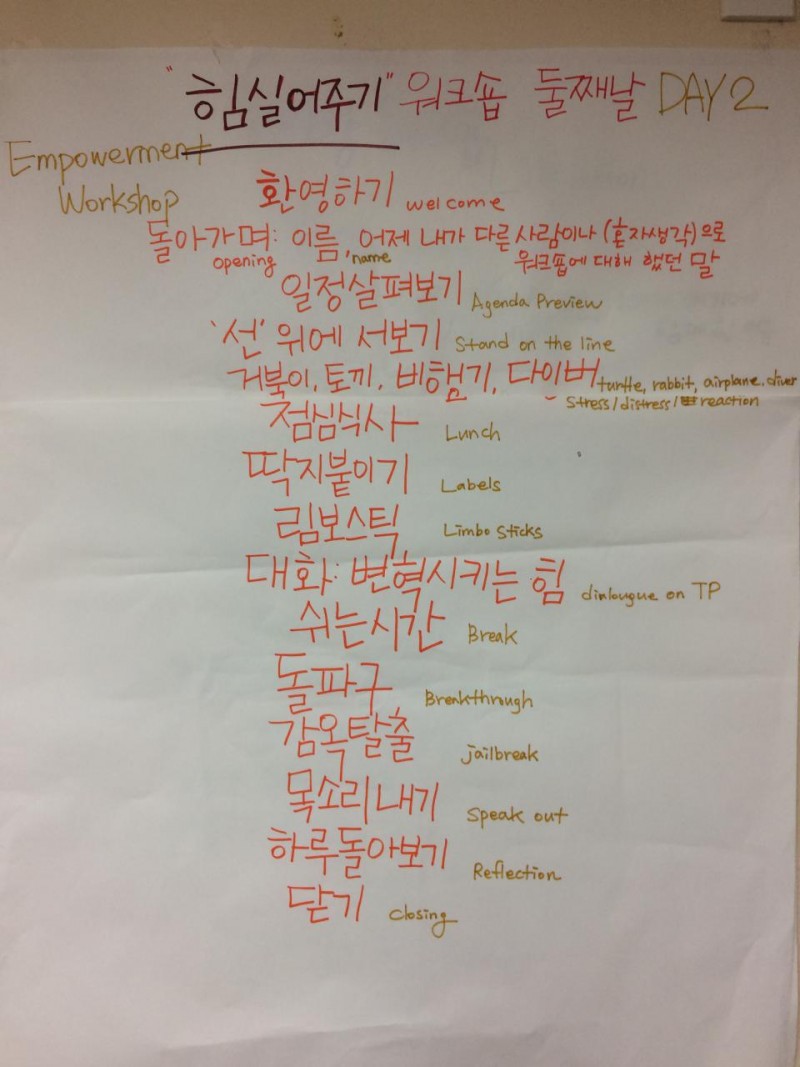 "힘실어주기" 워크숍 둘째날 DAY 2
Empowerment
Workshop
환영하기 welcome
돌아가며: 이름, 어제 내가 다른 사람이나 (혼자생각)으로
opening name 워크숍에 대해 했던 말
일정살펴보기 Agenda Preview
'선' 위에 서보기 Stand on the line
거북이, 토끼, 비행기, 다이버 turtle, rabbit, airplane, diver
stress/distress/reaction
점심식사 Lunch
딱지붙이기 Labels
림보스틱 Limbo sticks
대화: 변혁시키는 힘 dialougue on TP
쉬는시간 Break
돌파구 Breakthrough
감옥탈출 jailbreak
목소리내기 speak out
하루돌아보기 Reflection
닫기 closing